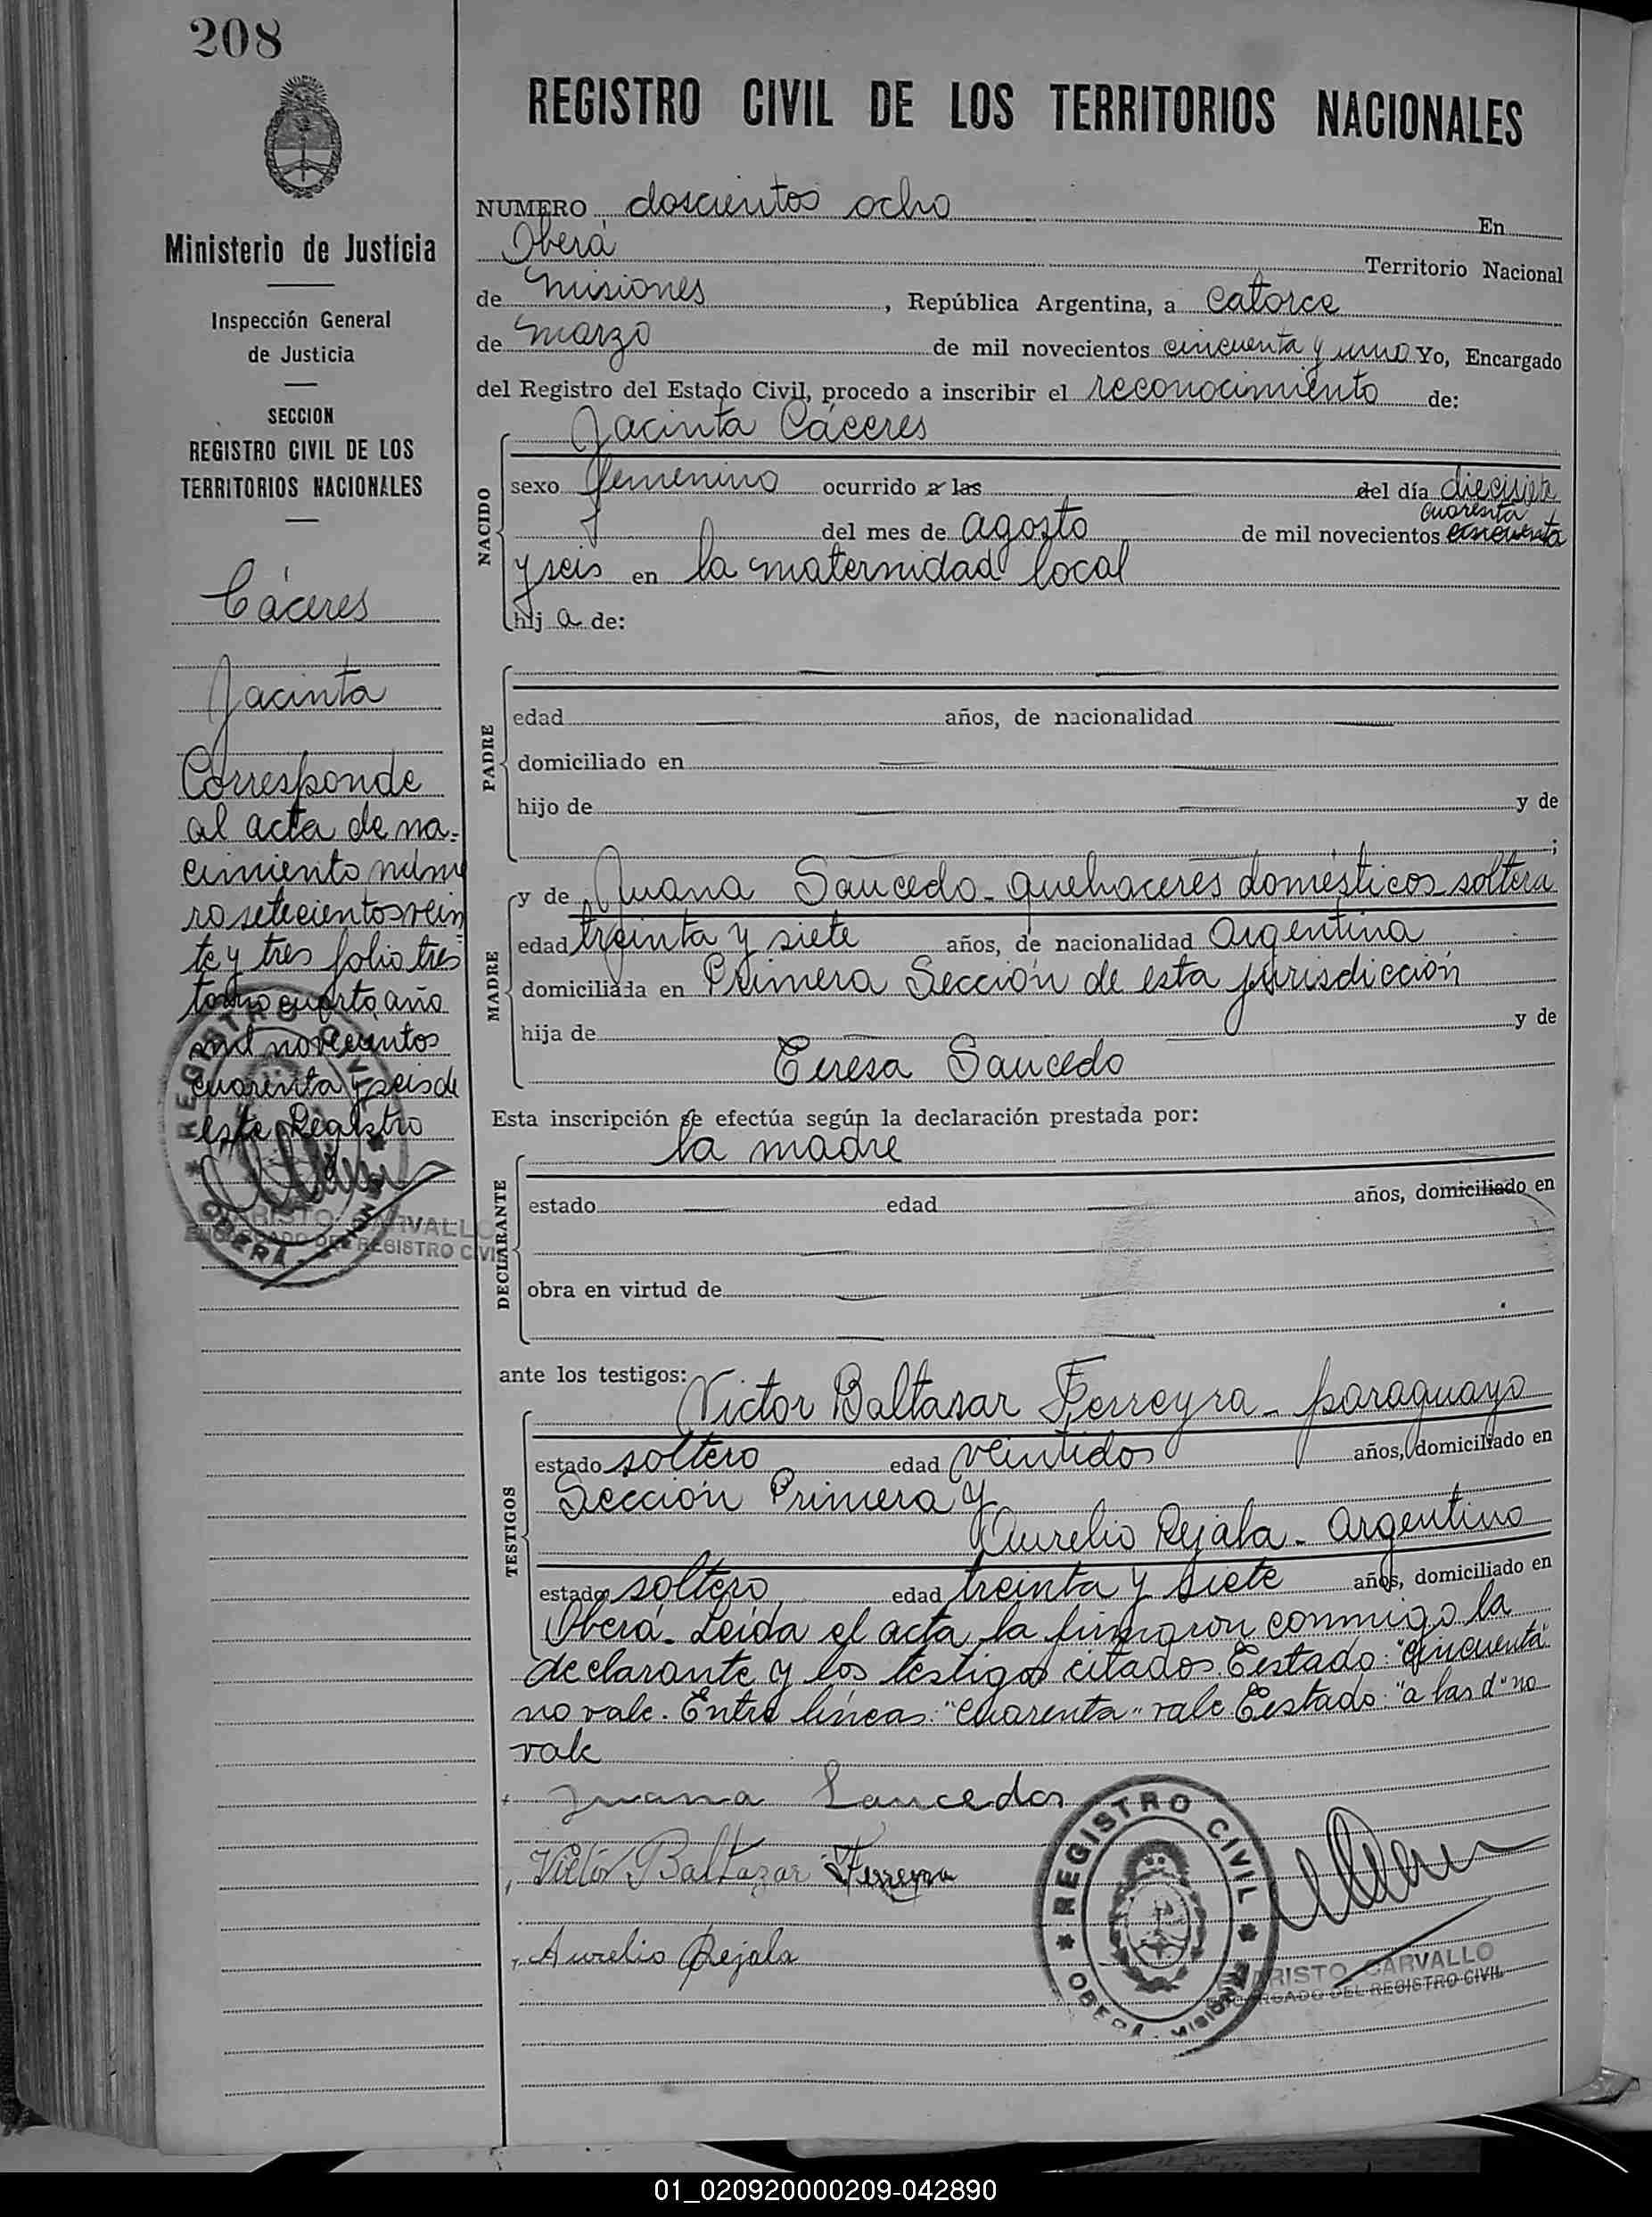 208
Ministerio de Justicia
Inspección General
de Justicia
SECCION
REGISTRO CIVIL DE LOS
TERRITORIOS NACIONALES
Cáceres
Jacinta
Corresponde
al acta de na-
cimiento núme
ro setecientos vein
te y tres folio tres
tomo cuarto, año
mil novecientos
cuarenta y seis de
este Registro
REGISTRO CIVIL
OBERA - MISIONES
ARISTO CARVALLO
ENCARGADO DEL REGISTRO CIVIL
REGISTRO CIVIL DE LOS TERRITORIOS NACIONALES
NUMERO doscientos ocho En
Oberá Territorio Nacional
de Misiones, República Argentina, a catorce
de marzo de mil novecientos cincuenta y uno Yo, Encargado
del Registro del Estado Civil, procedo a inscribir el reconocimiento de:
Jacinta Cáceres
NACIDO
sexo femenino ocurrido a las del día diecisiete
cuarenta
del mes de agosto de mil novecientos cincuenta
y seis en la maternidad local
hij a de:
PADRE
edad años, de nacionalidad
domiciliado en
hijo de y de
;
MADRE
y de Juana Saucedo - quehaceres domésticos - soltera
edad treinta y siete años, de nacionalidad Argentina
domiciliada en Primera Sección de esta jurisdicción
hija de y de
Teresa Saucedo
Esta inscripción se efectúa según la declaración prestada por:
la madre
DECLARANTE
estado edad años, domiciliado en
obra en virtud de
ante los testigos:
Victor Baltasar Ferreyra - paraguayo
TESTIGOS
estado soltero edad veintidos años, domiciliado en
Sección Primera y
Aurelio Rejala - Argentino
estado soltero edad treinta y siete años, domiciliado en
Oberá - Leída el acta la firmaron conmigo la
declarante y los testigos citados. Testado: "cincuenta"
no vale. Entre líneas: "cuarenta" vale Testado: "a las d" no
vale
Juana Saucedos
Victor Baltazar Ferreyra
Aurelio Rejala
REGISTRO CIVIL
OBERA - MISIONES
ARISTO CARVALLO
ENCARGADO DEL REGISTRO CIVIL
01_020920000209-042890